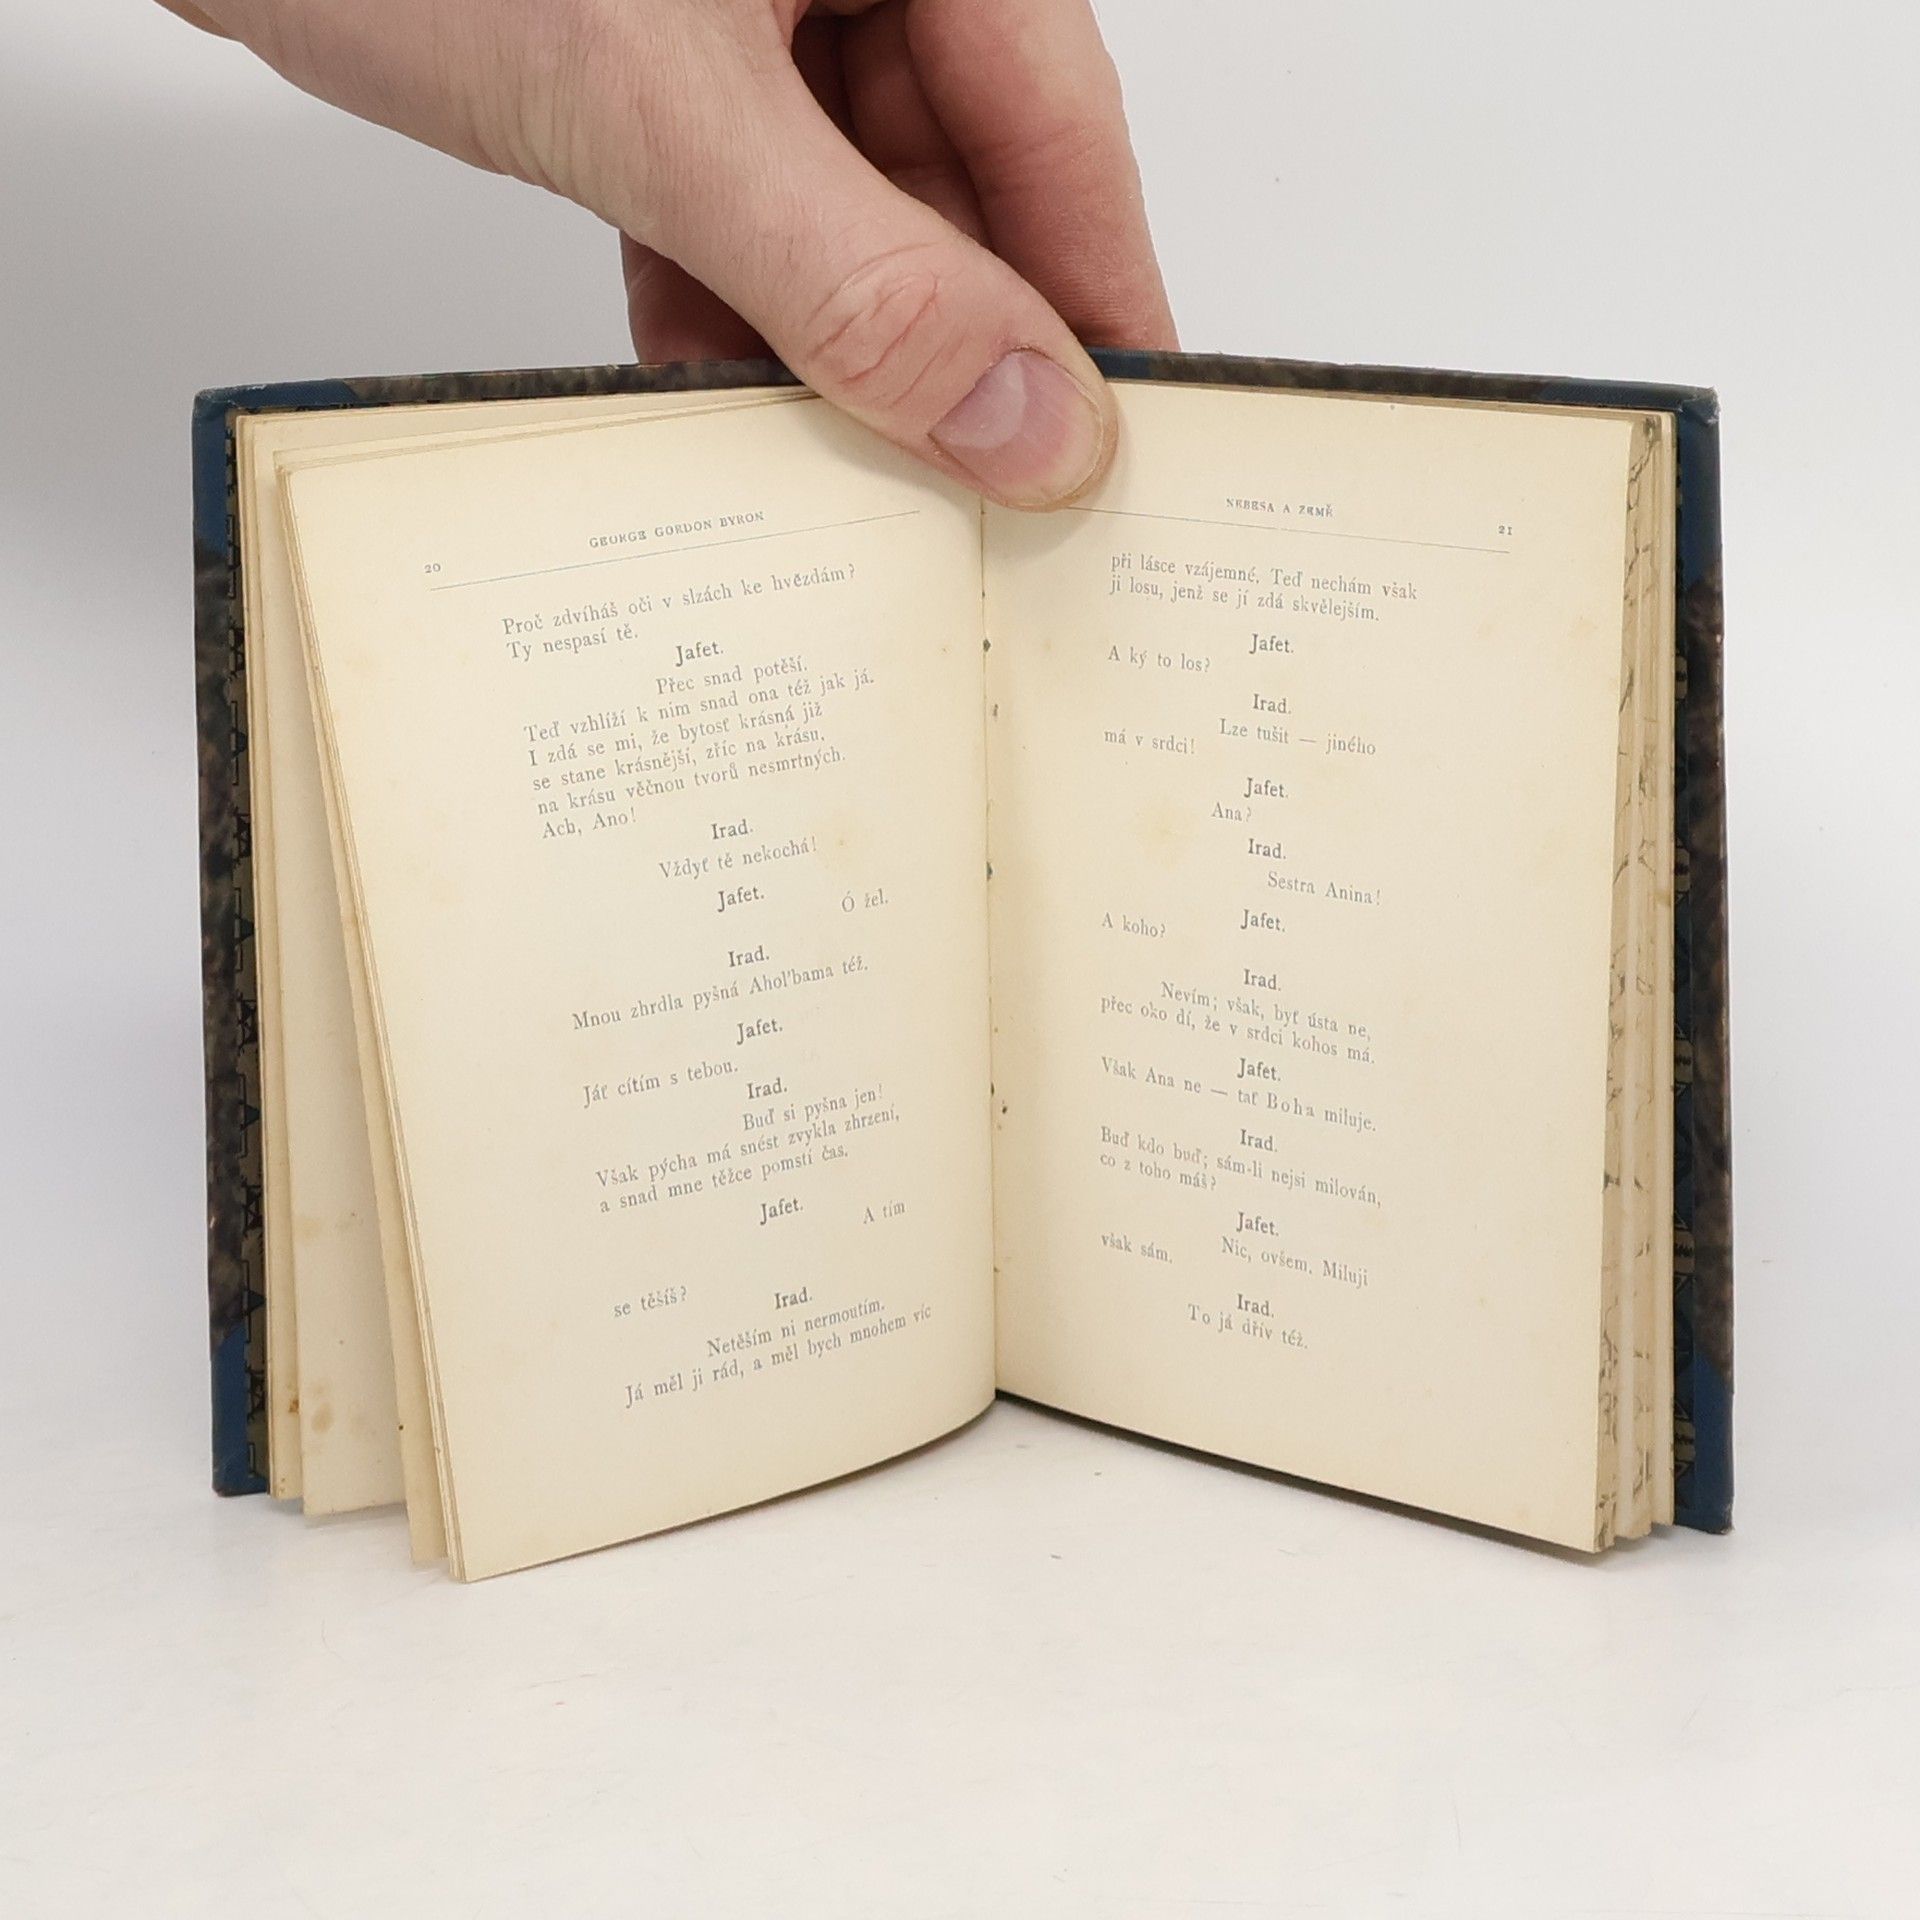 20
GEORGE GORDON BYRON
Proč zdvíháš oči v slzách ke hvězdám?
Ty nespasí tě.
Jafet.
Přec snad potěší.
Teď vzhlíží k nim snad ona též jak já.
I zdá se mi, že bytosť krásná již
se stane krásnější, zříc na krásu,
na krásu věčnou tvorů nesmrtných.
Ach, Ano!
Irad.
Vždyť tě nekochá!
Jafet.
Ó žel.
Irad.
Mnou zhrdla pyšná Ahol'bama též.
Jafet.
Jáť cítím s tebou.
Irad.
Buď si pyšna jen!
Však pýcha má snést zvykla zhrzení,
a snad mne těžce pomstí čas.
Jafet.
A tím
se těšíš?
Irad.
Netěším ni nermoutím.
Já měl ji rád, a měl bych mnohem víc
NEBESA A ZEMĚ
21
při lásce vzájemné. Teď nechám však
ji losu, jenž se jí zdá skvělejším.
Jafet.
A ký to los?
Irad.
Lze tušit — jiného
má v srdci!
Jafet.
Ana?
Irad.
Sestra Anina!
Jafet.
A koho?
Irad.
Nevím; však, byť ústa ne,
přec oko dí, že v srdci kohos má.
Jafet.
Však Ana ne — tať Boha miluje.
Irad.
Buď kdo buď; sám-li nejsi milován,
co z toho máš?
Jafet.
Nic, ovšem. Miluji
však sám.
Irad.
To já dřív též.